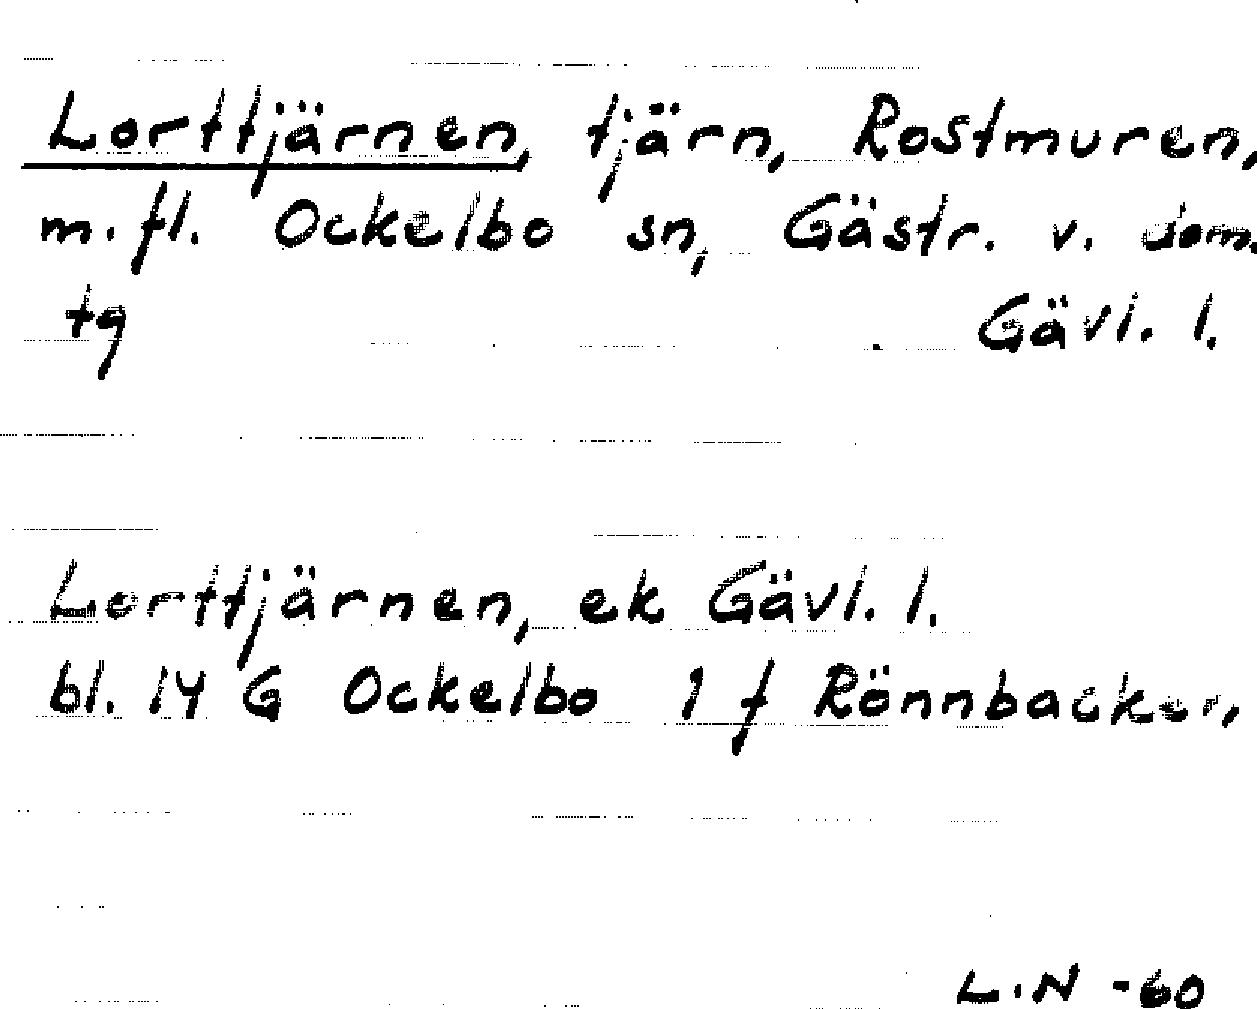 Lorttjärnen, tjärn, Rostmuren,
m.fl. Ockelbo sn, Gästr. v. dom.
tg Gävl. l.
Lorttjärnen, ek Gävl. l.
bl. 14 G Ockelbo 1 f Rönnbacken,
L.N -60